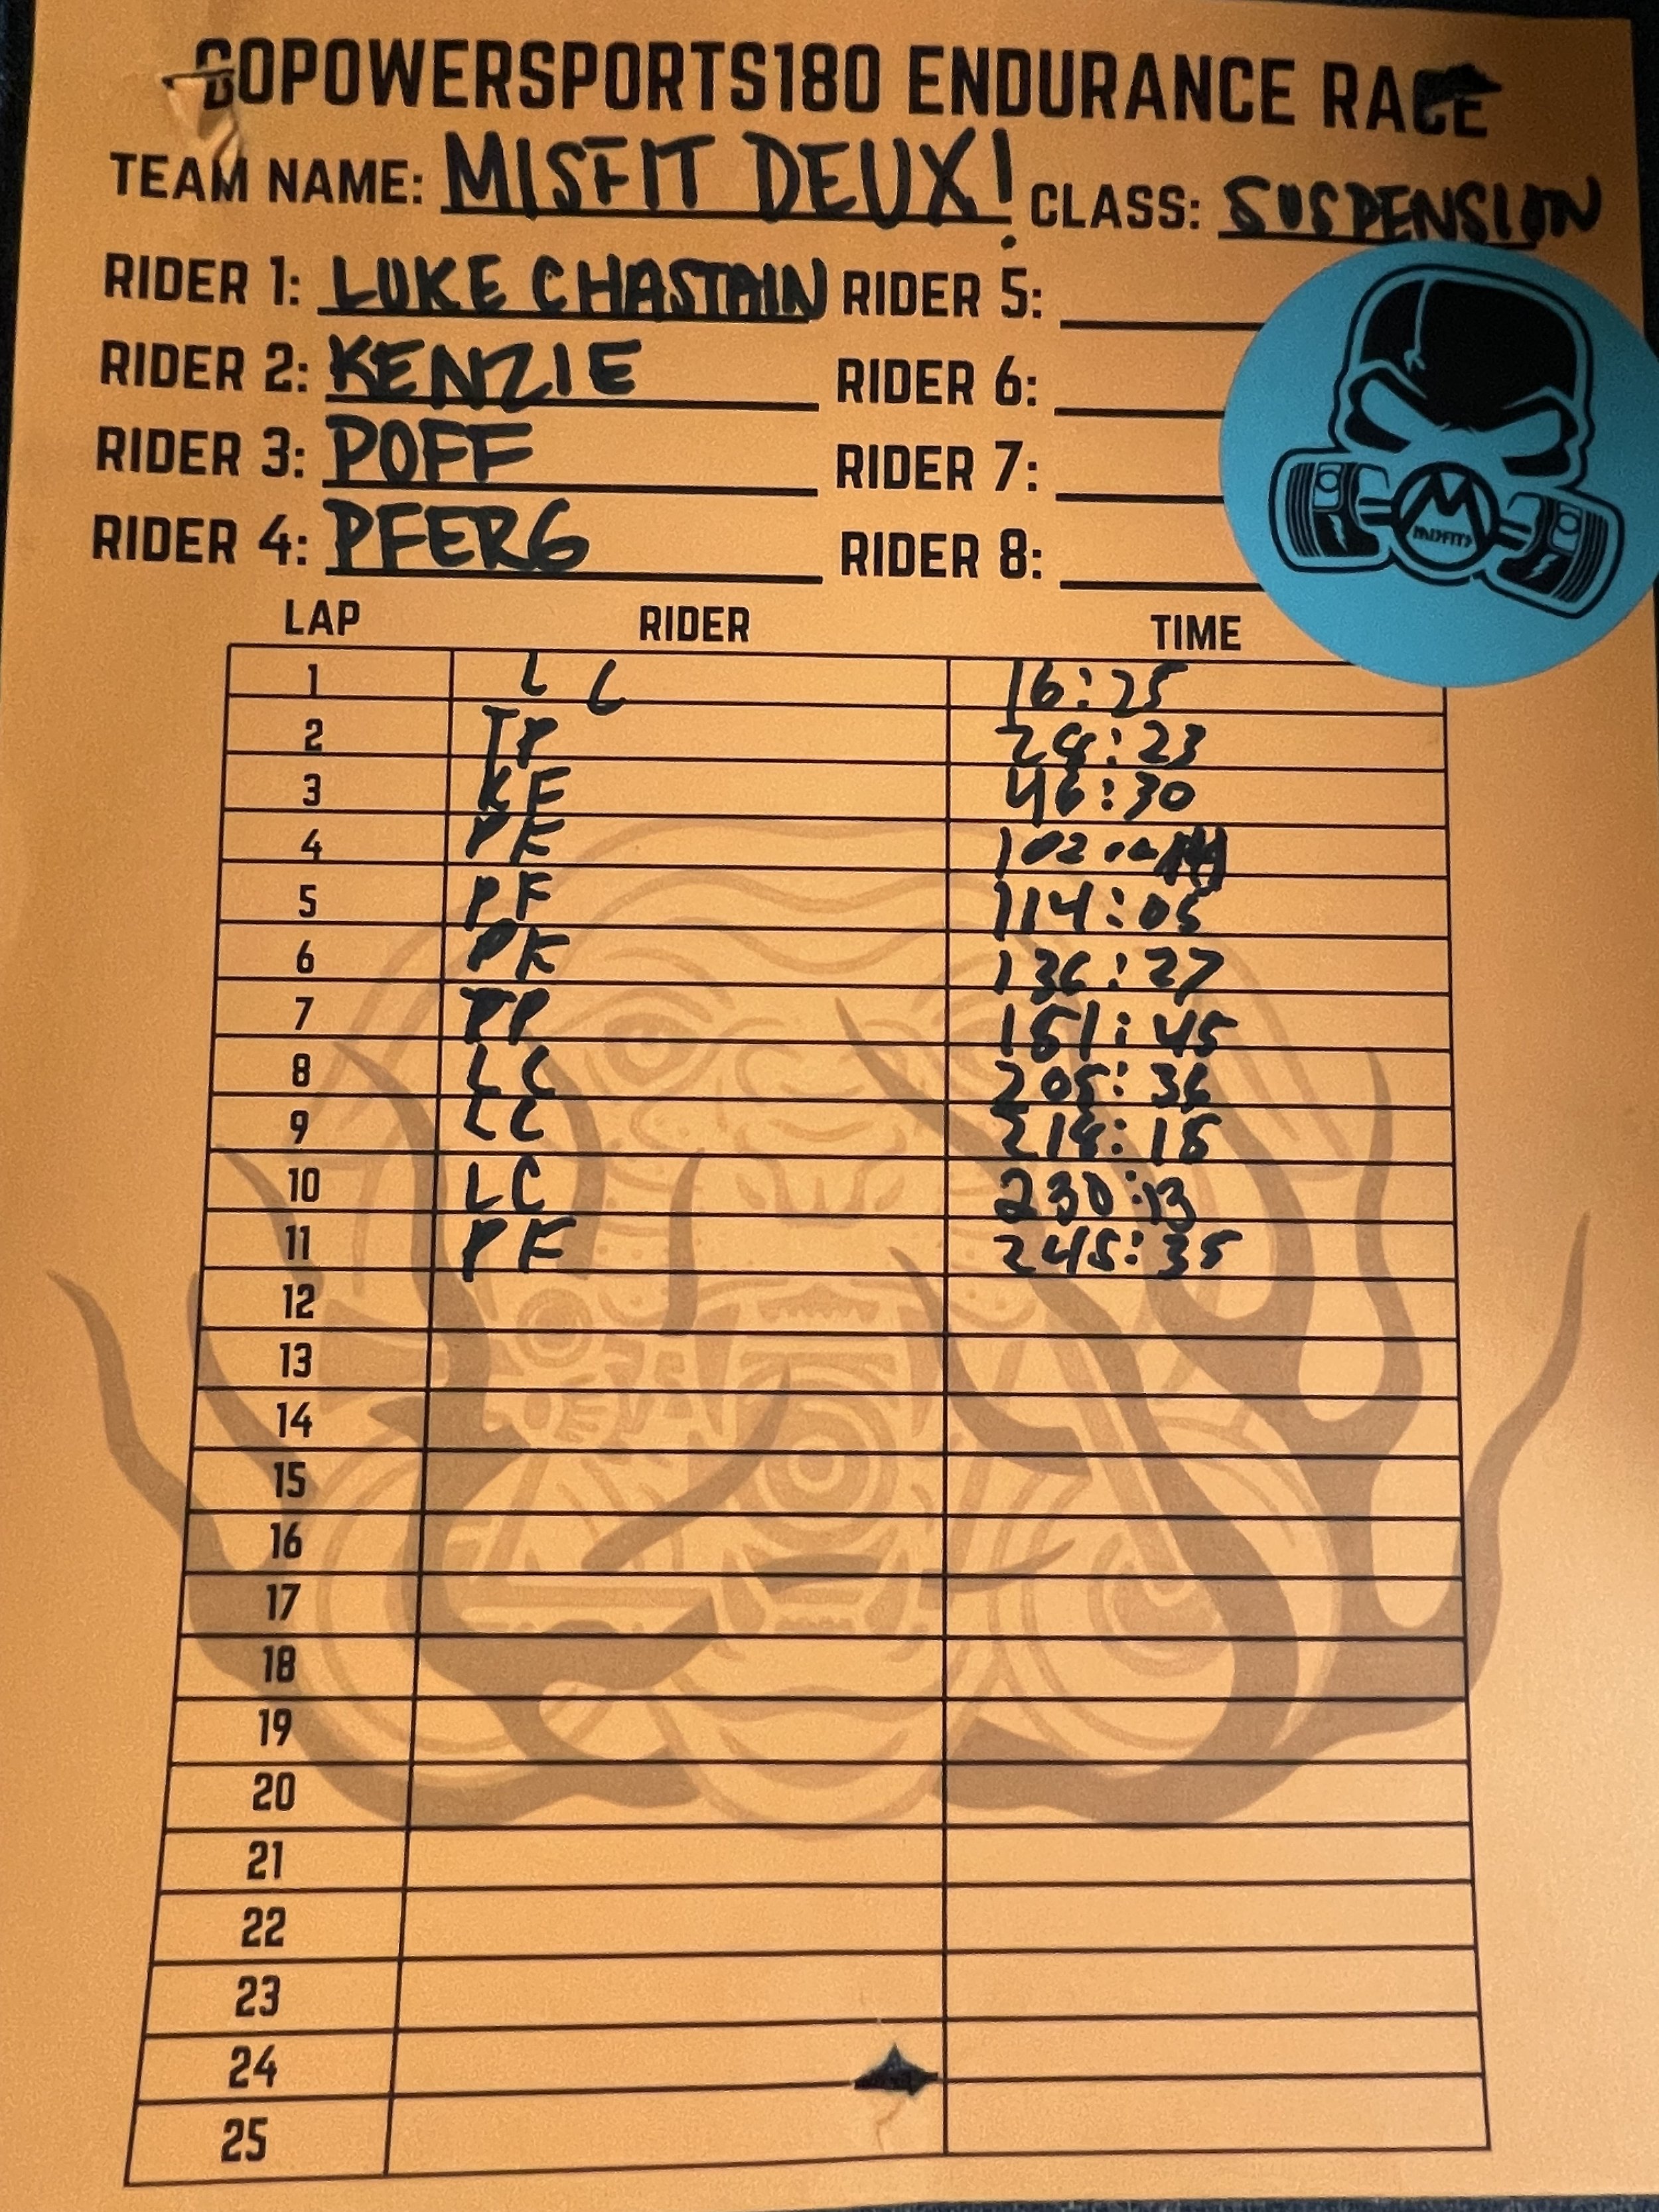 GOPOWERSPORTS180 ENDURANCE RACE
TEAM NAME: MISFIT DEUX! CLASS: SUSPENSION
RIDER 1: LUKE CHASTAIN RIDER 5:
RIDER 2: KENZIE RIDER 6:
RIDER 3: POFF RIDER 7:
RIDER 4: PFERG RIDER 8:
MISFITS
LAP RIDER TIME
1 L C 16:25
2 TP 28:23
3 KF 46:30
4 PF 102
5 PF 114:05
6 PF 136:27
7 TP 151:45
8 LC 205:36
9 LC 218:15
10 LC 230:13
11 PF 245:35
12
13
14
15
16
17
18
19
20
21
22
23
24
25